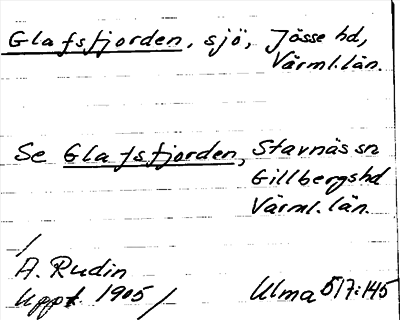 Glafsfjorden, sjö, Jösse hd,
Värml. län.
Se Glafsfjorden, Stavnäs sn
Gillbergs hd
Värml. län.
/
A. Rudin
Uppt. 1905 / Ulma 517:145